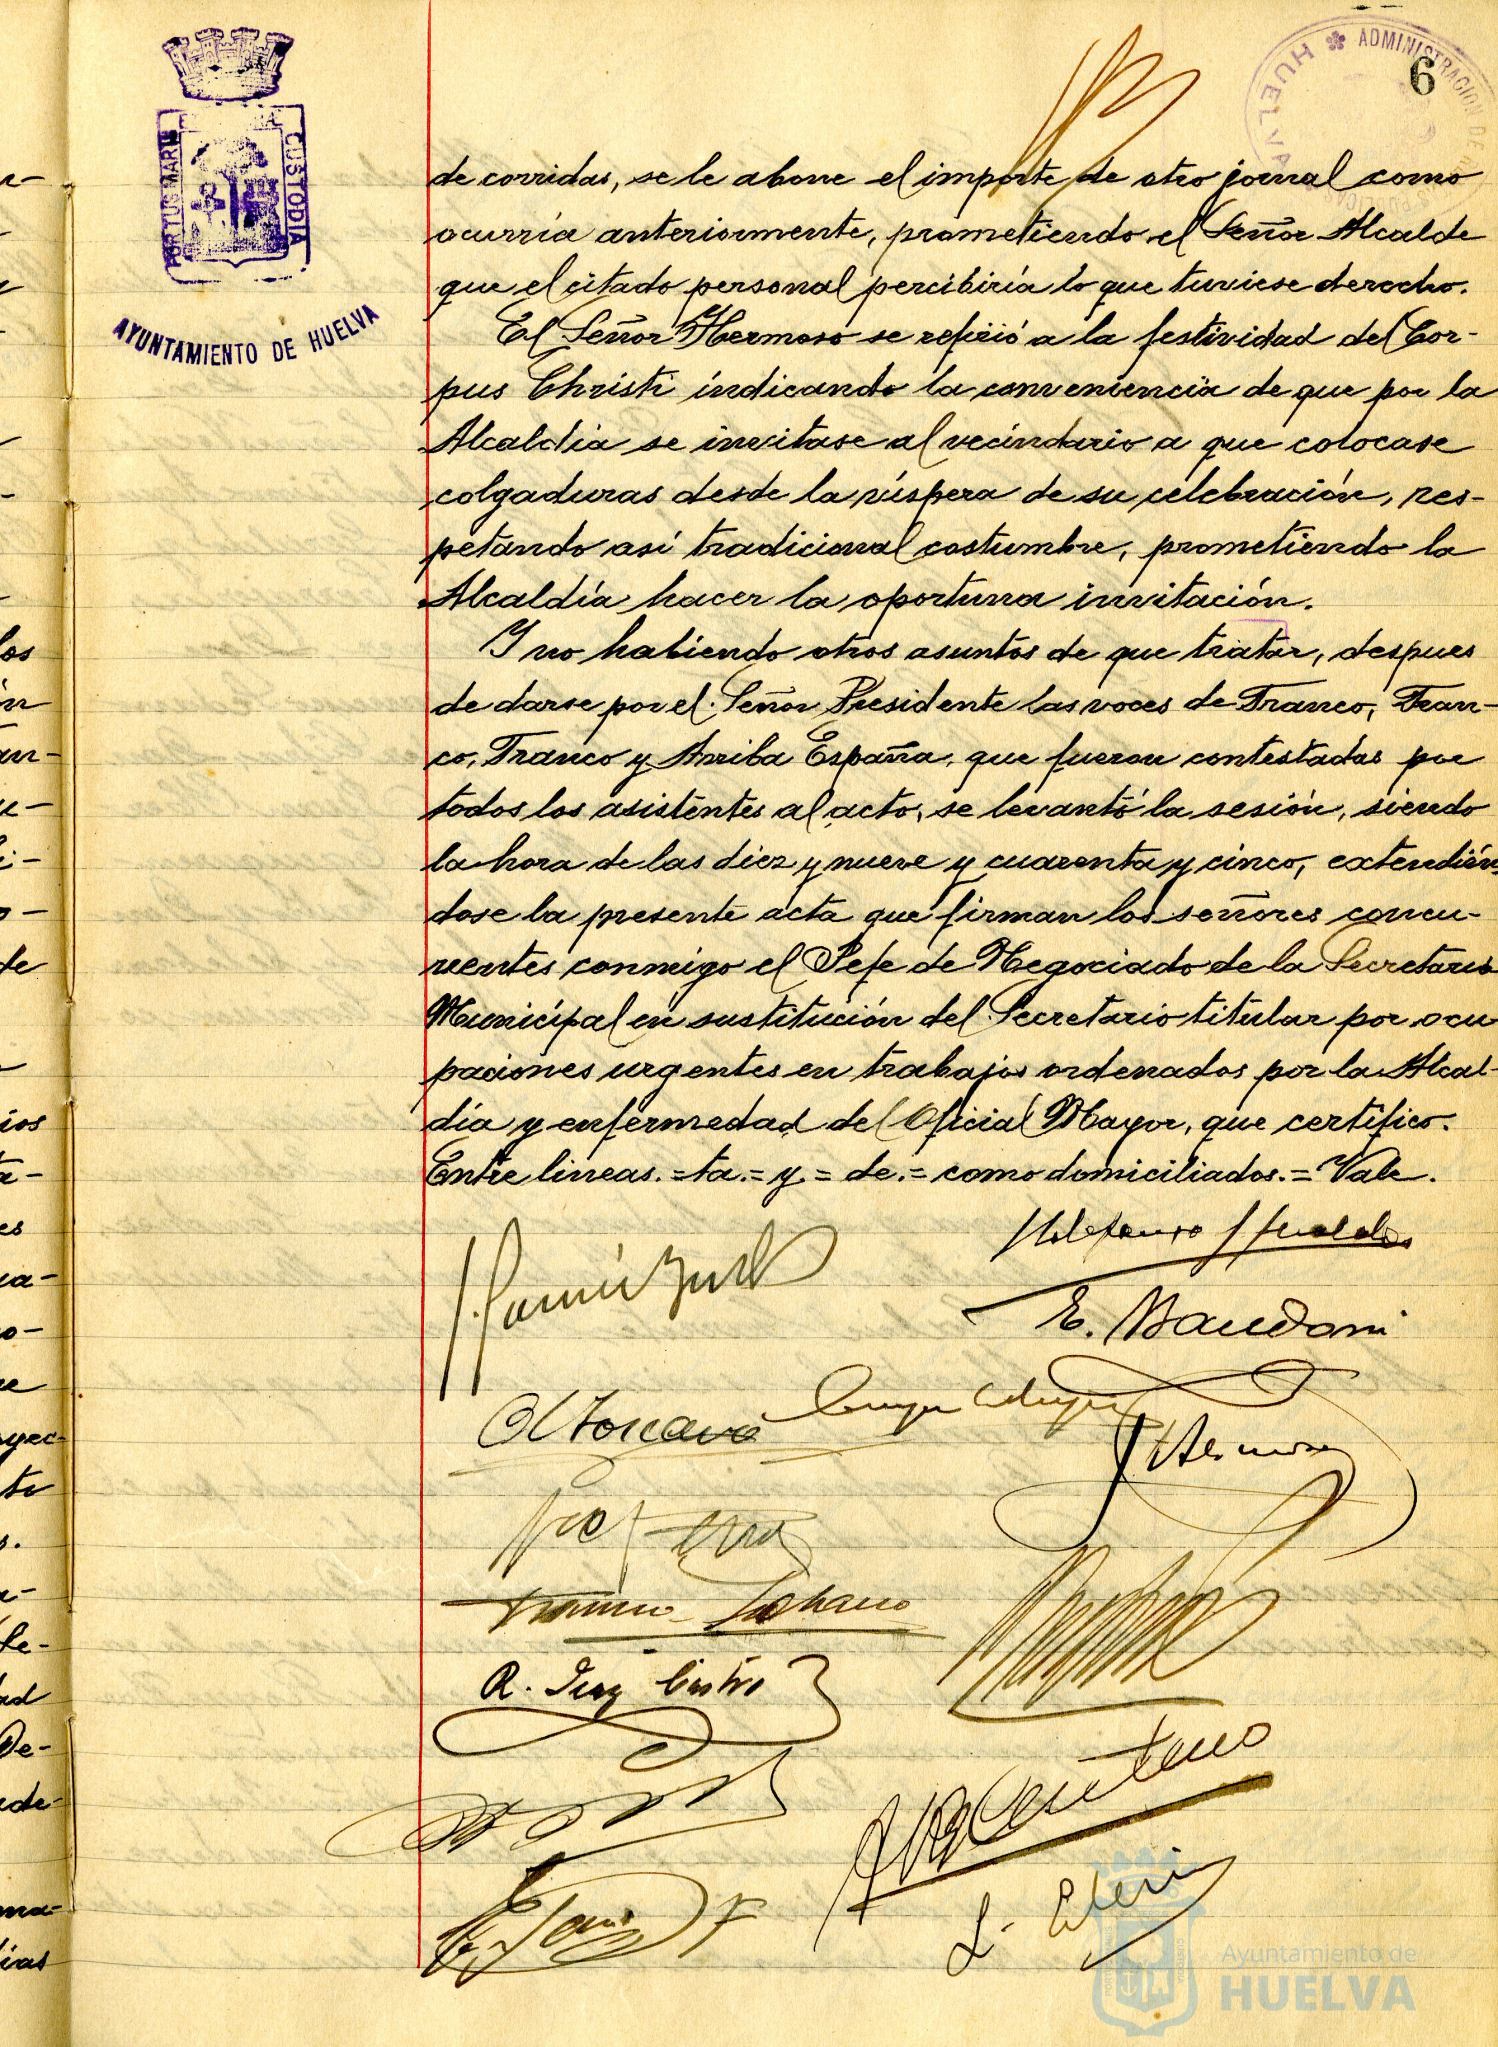 6
ADMINISTRACION DE
HUELVA
PORTUS MARIS
CUSTODIA
AYUNTAMIENTO DE HUELVA
de corridas, se le abone el importe de otro jornal como
ocurría anteriormente, prometiendo el Señor Alcalde
que el citado personal percibiría lo que tuviese derecho.
El Señor Hermoso se refirió a la festividad del Cor-
pus Christi indicando la conveniencia de que por la
Alcaldia se invitase al vecindario a que colocase
colgaduras desde la víspera de su celebración, res-
petando así tradicional costumbre, prometiendo la
Alcaldía hacer la oportuna invitación.
Y no habiendo otros asuntos de que tratar, despues
de darse por el Señor Presidente las voces de Franco, Fran-
co, Franco y Arriba España, que fueron contestadas por
todos los asistentes al acto, se levantó la sesión, siendo
la hora de las diez y nueve y cuarenta y cinco, extendién-
dose la presente acta que firman los señores concu-
rrentes conmigo el Jefe de Negociado de la Secretaria
Municipal en sustitución del Secretario titular por ocu
paciones urgentes en trabajos ordenados por la Alcal-
dia y enfermedad del Oficial Mayor, que certifico.
Entre lineas.=ta.=y.=de.=como domiciliados.=Vale.
E.
R. Diaz Castro
L.
Ayuntamiento de
HUELVA